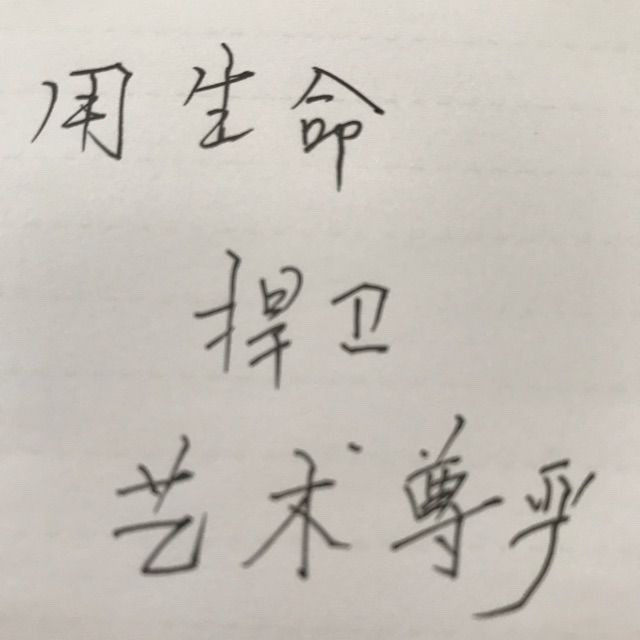 用生命
捍卫
艺术尊乎